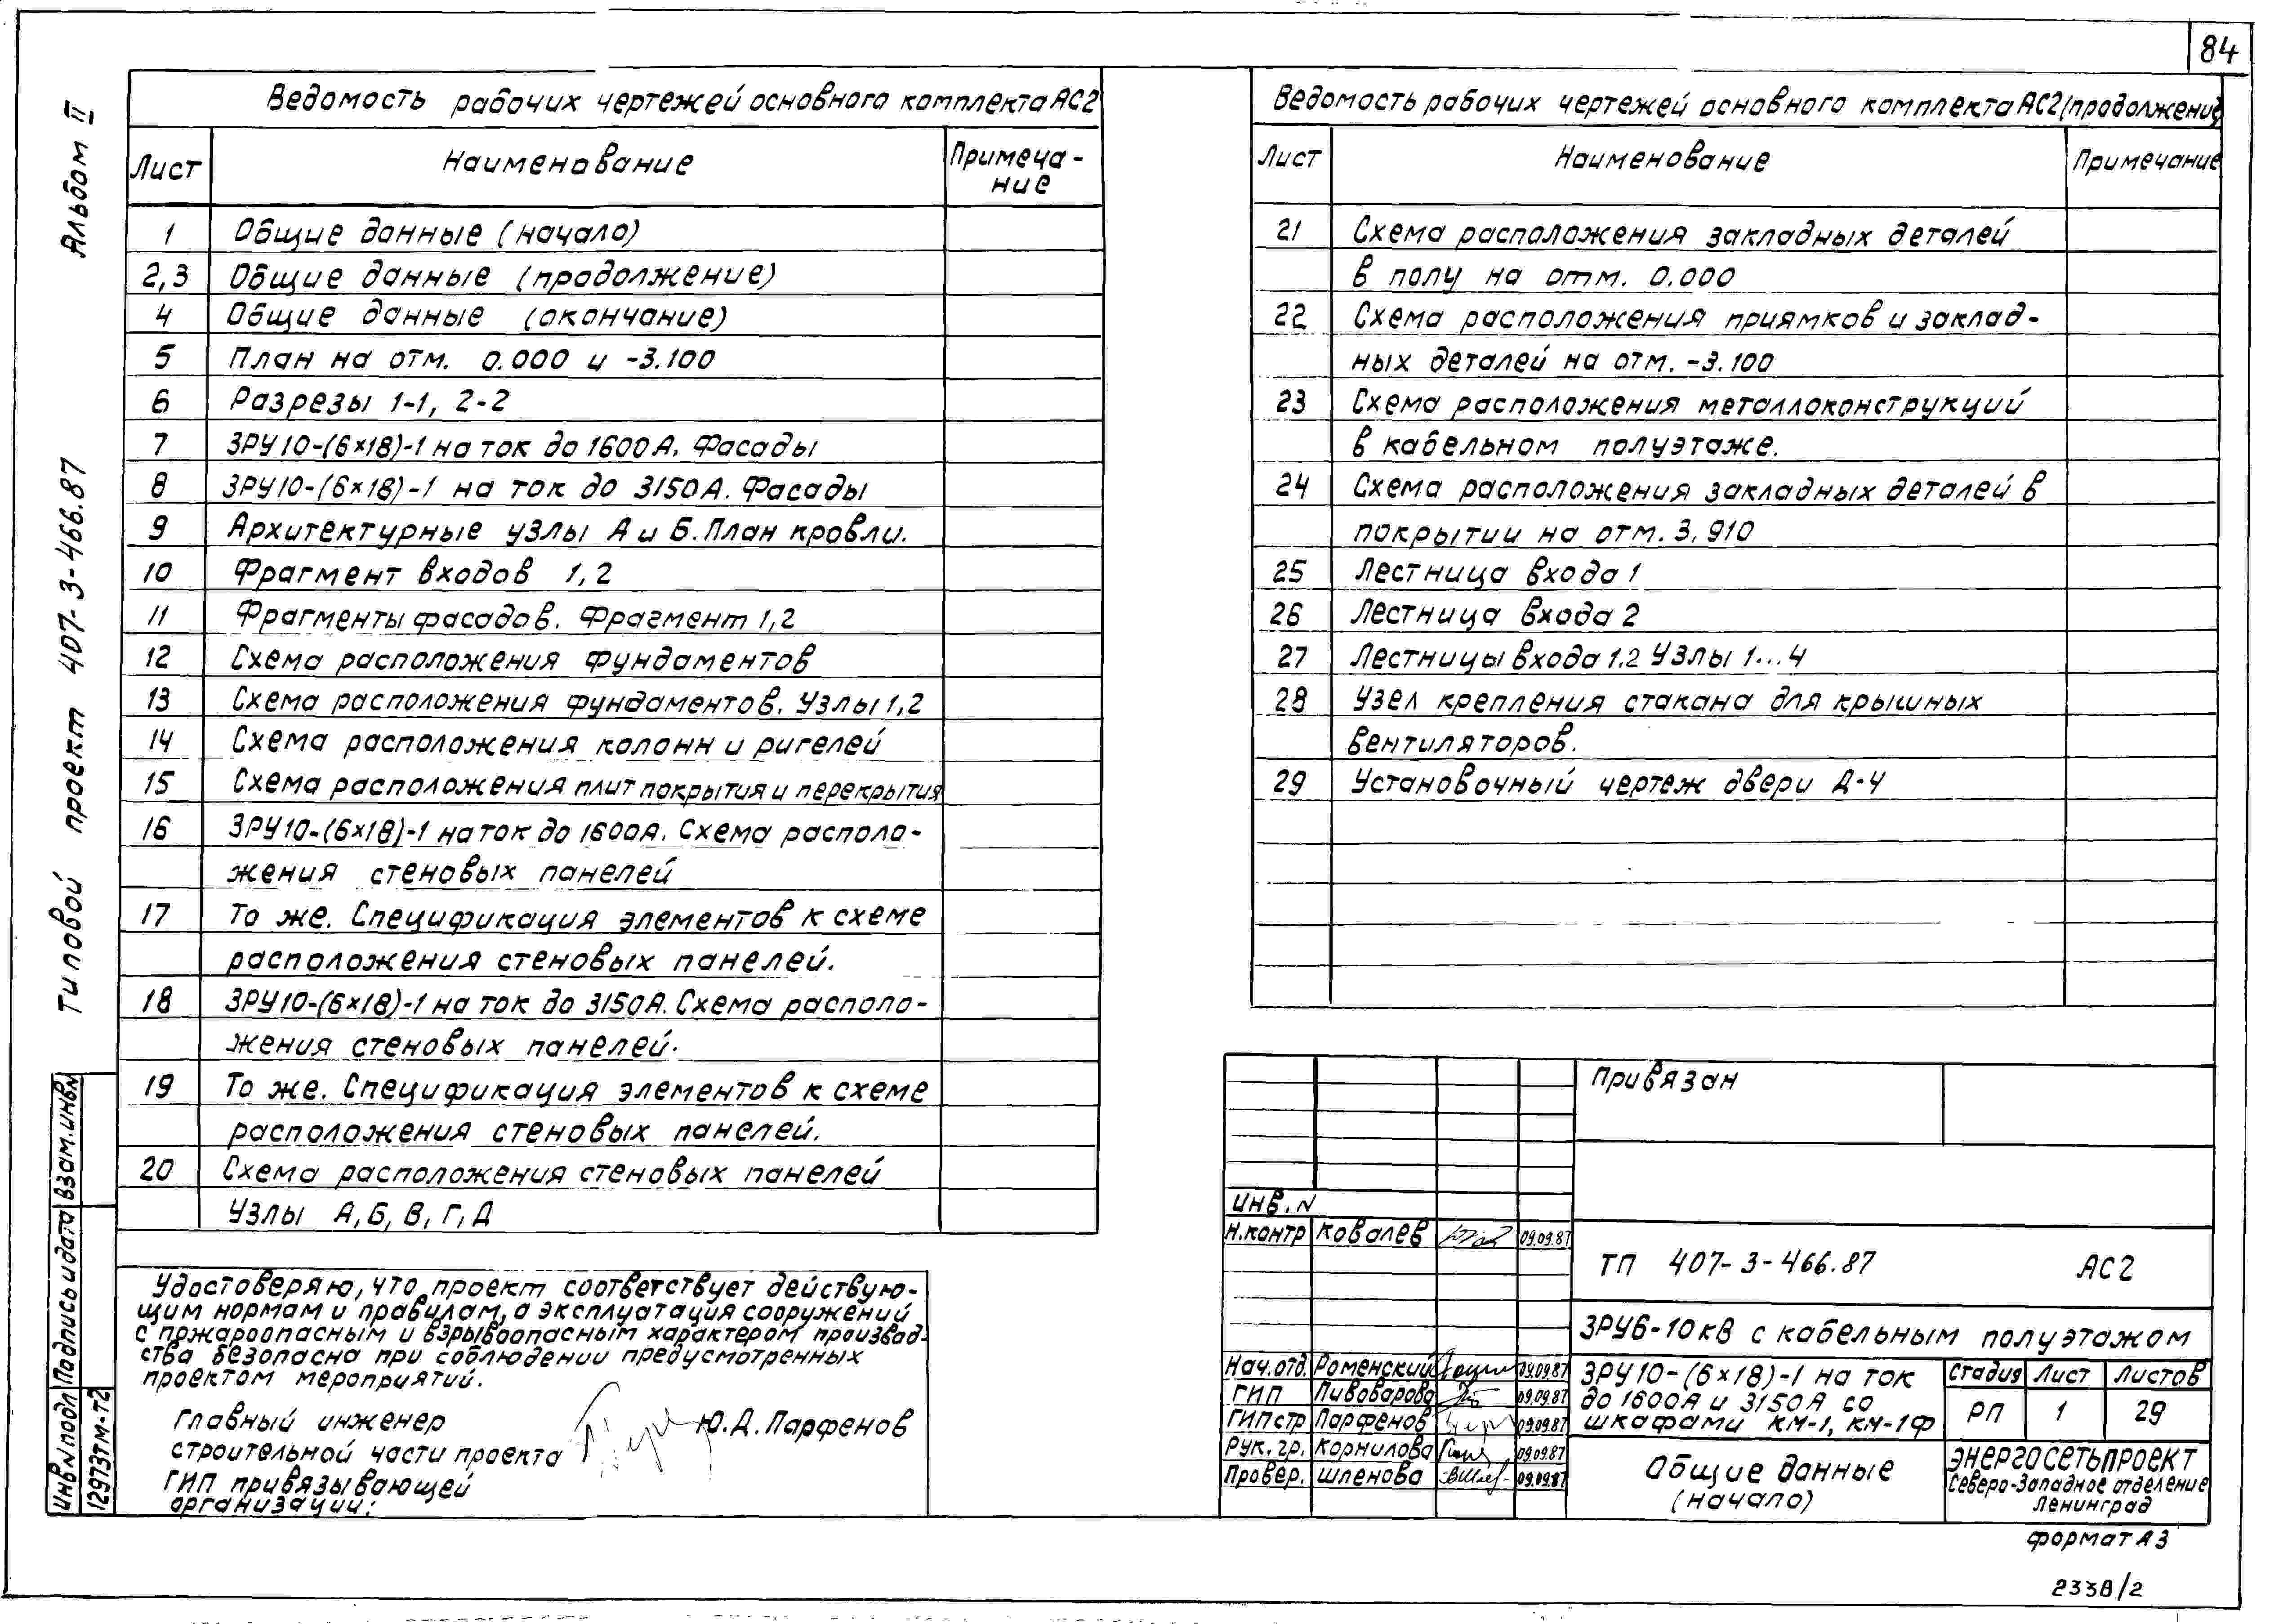 84
Альбом II
Типовой проект 407-3-466.87
Ведомость рабочих чертежей основного комплекта АС2
Лист Наименование Примеча-
ние
1 Общие данные (начало)
2,3 Общие данные (продолжение)
4 Общие данные (окончание)
5 План на отм. 0.000 и -3.100
6 Разрезы 1-1, 2-2
7 ЗРУ10-(6×18)-1 на ток до 1600А. Фасады
8 ЗРУ10-(6×18)-1 на ток до 3150А. Фасады
9 Архитектурные узлы А и Б. План кровли.
10 Фрагмент входов 1,2
11 Фрагменты фасадов. Фрагмент 1,2
12 Схема расположения фундаментов
13 Схема расположения фундаментов. Узлы 1,2
14 Схема расположения колонн и ригелей
15 Схема расположения плит покрытия и перекрытия
16 ЗРУ10-(6×18)-1 на ток до 1600А. Схема располо-
жения стеновых панелей
17 То же. Спецификация элементов к схеме
расположения стеновых панелей.
18 ЗРУ10-(6×18)-1 на ток до 3150А. Схема располо-
жения стеновых панелей.
19 То же. Спецификация элементов к схеме
расположения стеновых панелей.
20 Схема расположения стеновых панелей
Узлы А, Б, В, Г, Д
Ведомость рабочих чертежей основного комплекта АС2 (продолжение)
Лист Наименование Примечание
21 Схема расположения закладных деталей
в полу на отм. 0.000
22 Схема расположения приямков и заклад-
ных деталей на отм. -3.100
23 Схема расположения металлоконструкций
в кабельном полуэтаже.
24 Схема расположения закладных деталей в
покрытии на отм. 3,910
25 Лестница входа 1
26 Лестница входа 2
27 Лестницы входа 1.2 Узлы 1...4
28 Узел крепления стакана для крышных
вентиляторов.
29 Установочный чертеж двери Д-4
Удостоверяю, что проект соответствует действую-
щим нормам и правилам, а эксплуатация сооружений
с пожароопасным и взрывоопасным характером производ-
ства безопасна при соблюдении предусмотренных
проектом мероприятий.
Главный инженер
строительной части проекта Ю.Д.Парфенов
ГИП привязывающей
организации:
Взам.инв.N
Подпись и дата
Инв N подл
12973тм-т2
Привязан
Инв. N
Н.контр Ковалев 09.09.87
Нач.отд. Роменский 09.09.87
ГИП Пивоварова 09.09.87
ГИПстр Парфенов 09.09.87
Рук.гр. Корнилова 09.09.87
Провер. Шленова 09.09.87
ТП 407-3-466.87 АС2
ЗРУ6-10кВ с кабельным полуэтажом
ЗРУ10-(6×18)-1 на ток
до 1600А и 3150А со
шкафами КМ-1, КМ-1Ф
Стадия Лист Листов
РП 1 29
Общие данные
(начало)
Энергосетьпроект
Северо-Западное отделение
Ленинград
Формат А3
2338/2